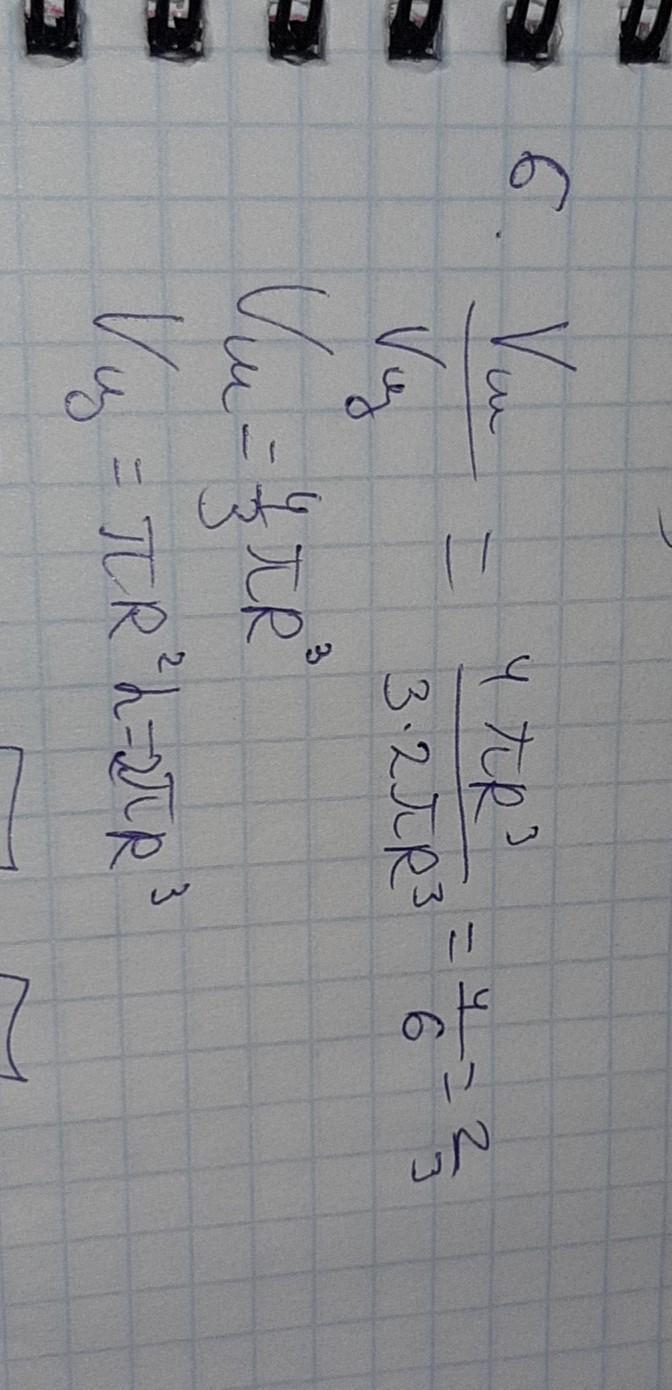 6. Vш/Vц = 4πR³/3·2πR³ = 4/6 = 2/3
Vш = 4/3 πR³
Vц = πR²h = 2πR³